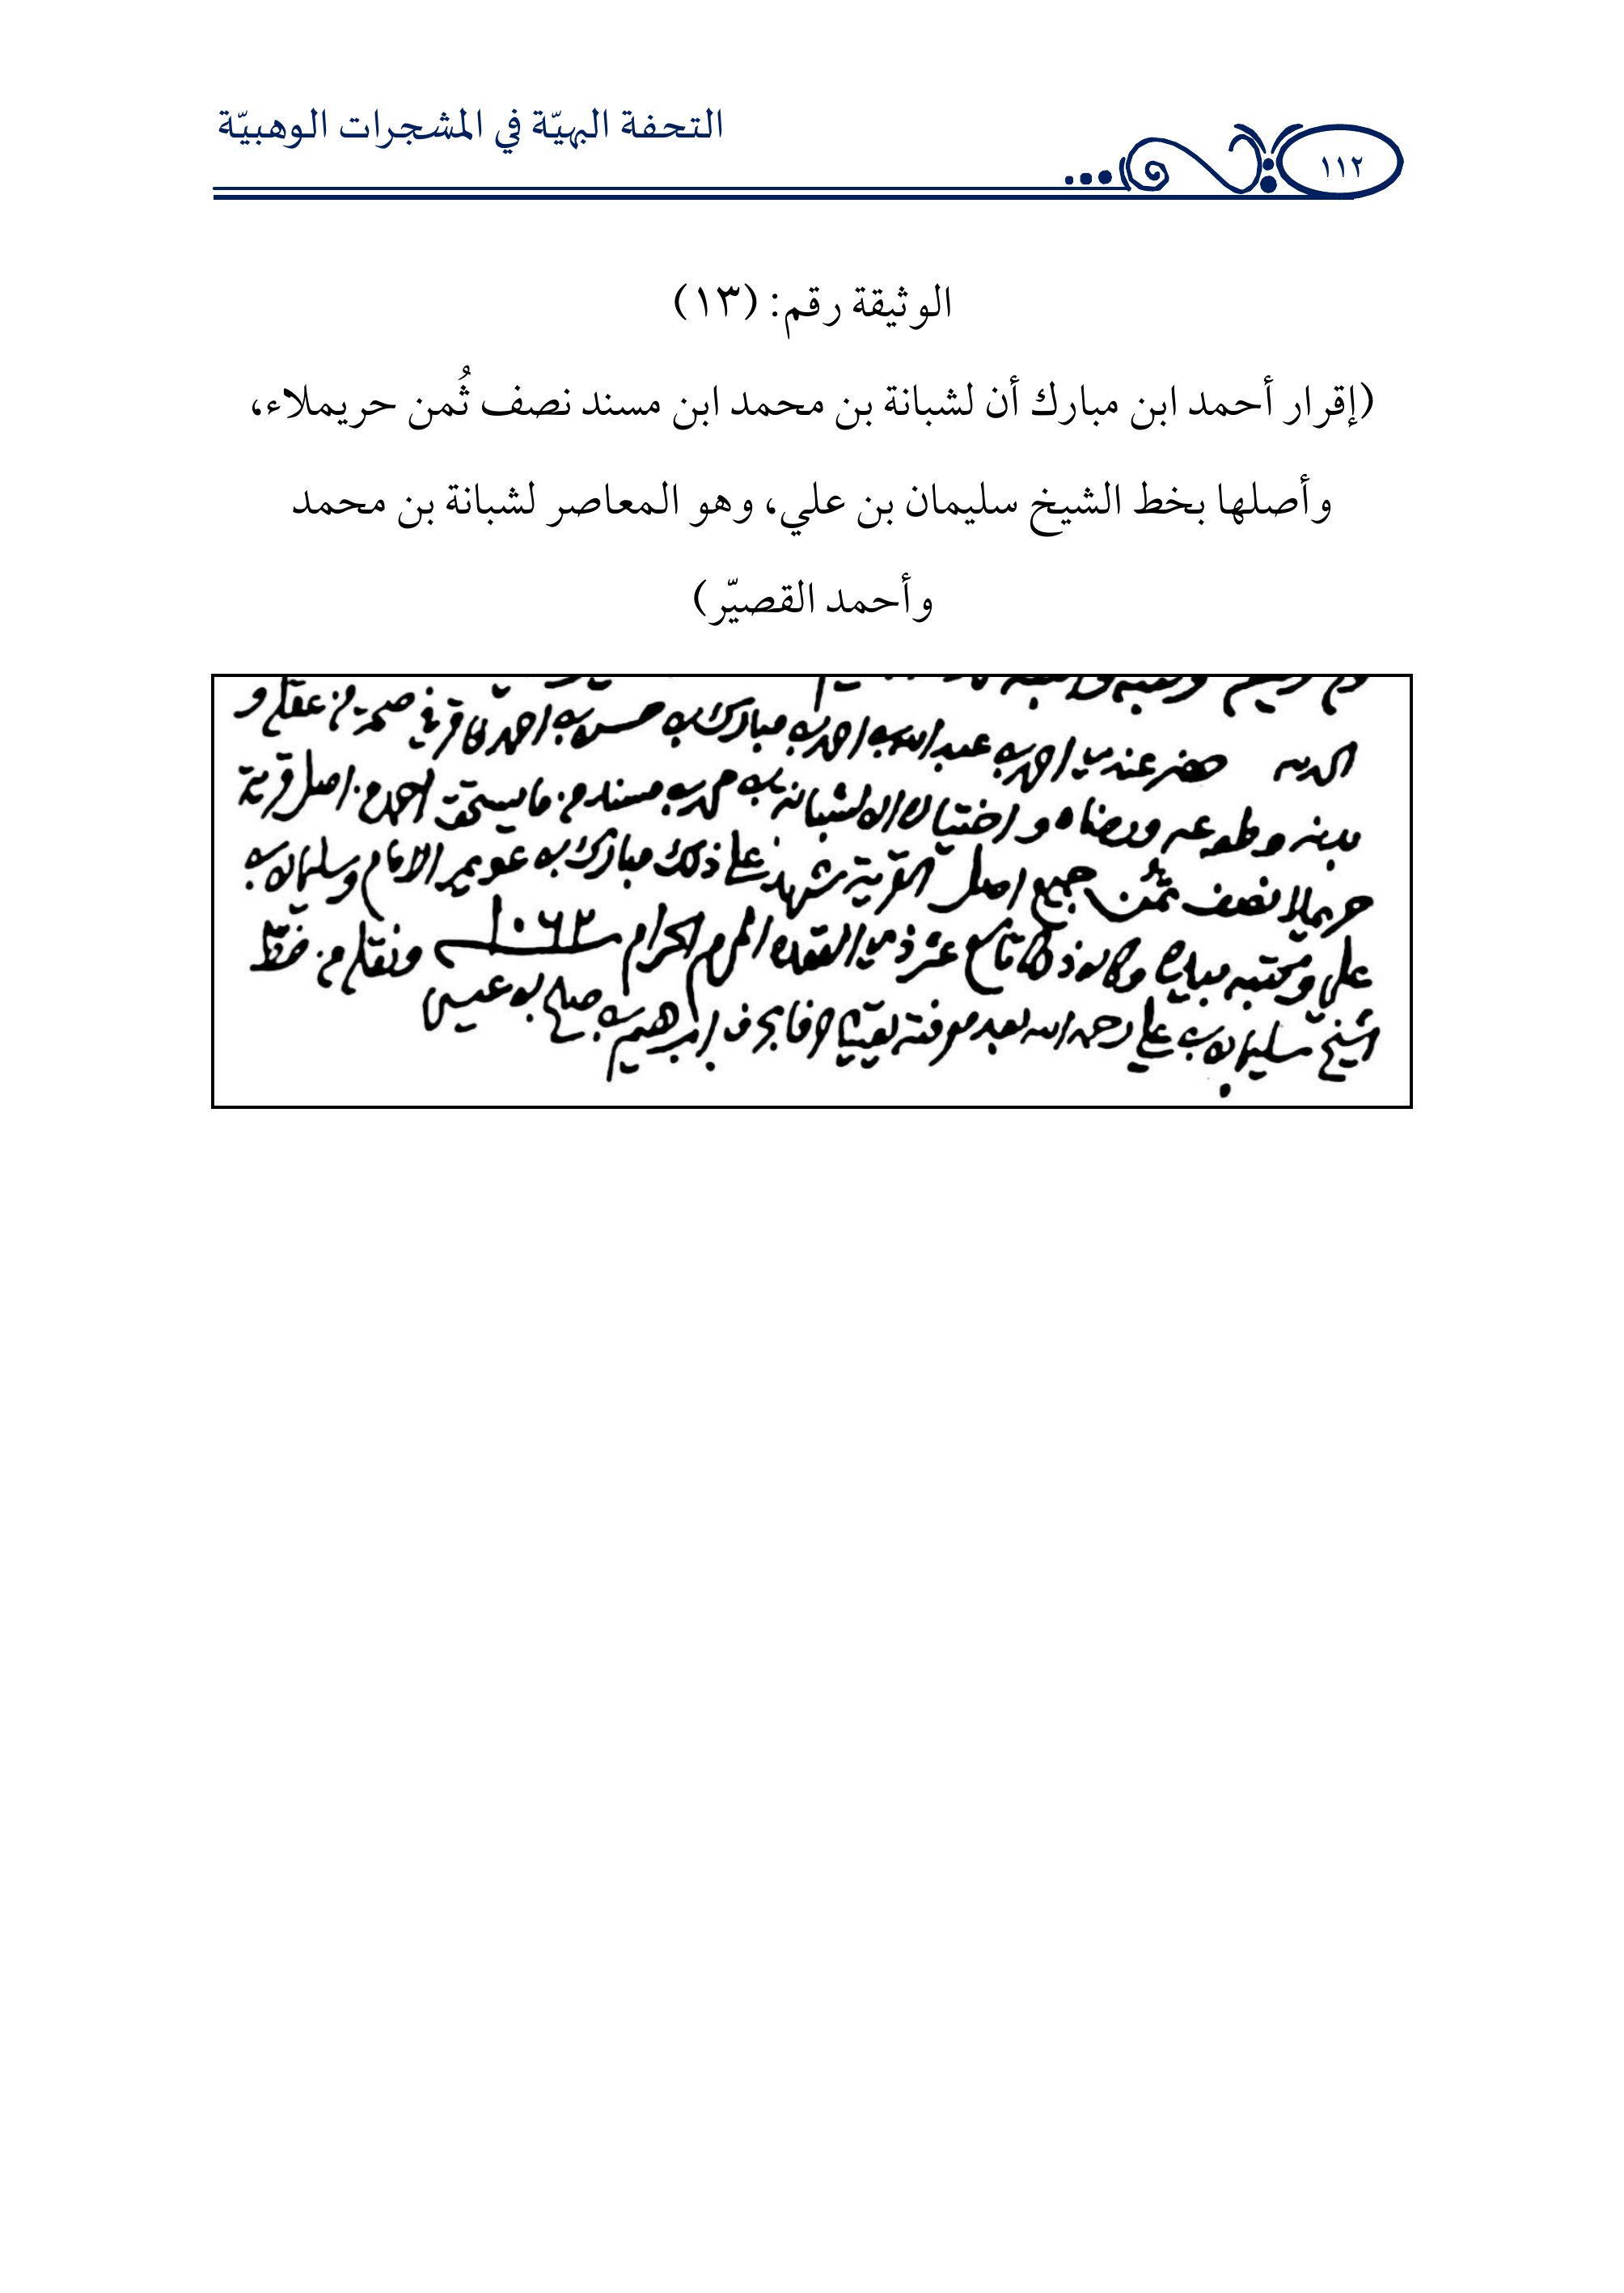 التحفة البهيّة في المشجرات الوهبيّة
١١٢
الوثيقة رقم: (١٣)
(إقرار أحمد ابن مبارك أن لشبانة بن محمد ابن مسند نصف ثُمن حريملاء،
وأصلها بخط الشيخ سليمان بن علي، وهو المعاصر لشبانة بن محمد
وأحمد القصيّر)
الحمد لله حضر عندي احمد بن عبد الله بن احمد بن مبارك بن حسن بن احمد فاقر في صحة من عقله و
بدنه وطوعه ورضاه واختياره ان لشبانه بن محمد بن مسند من ما يستحق احمد من اصل قرية
حريملا نصف ثمن جميع اصل القرية شهد على ذلك مبارك بن عويمر الامام وسليمان بن
علي وكتبه بيده وكان ذلك تاسع عشر ذي القعده المحرم الحرام سنة ١٠٦٣ ونقله من خط
الشيخ سليمان بن علي رحمه الله بعد معرفته يقينا حرفا بحرف ابراهيم بن صالح بن عيسى